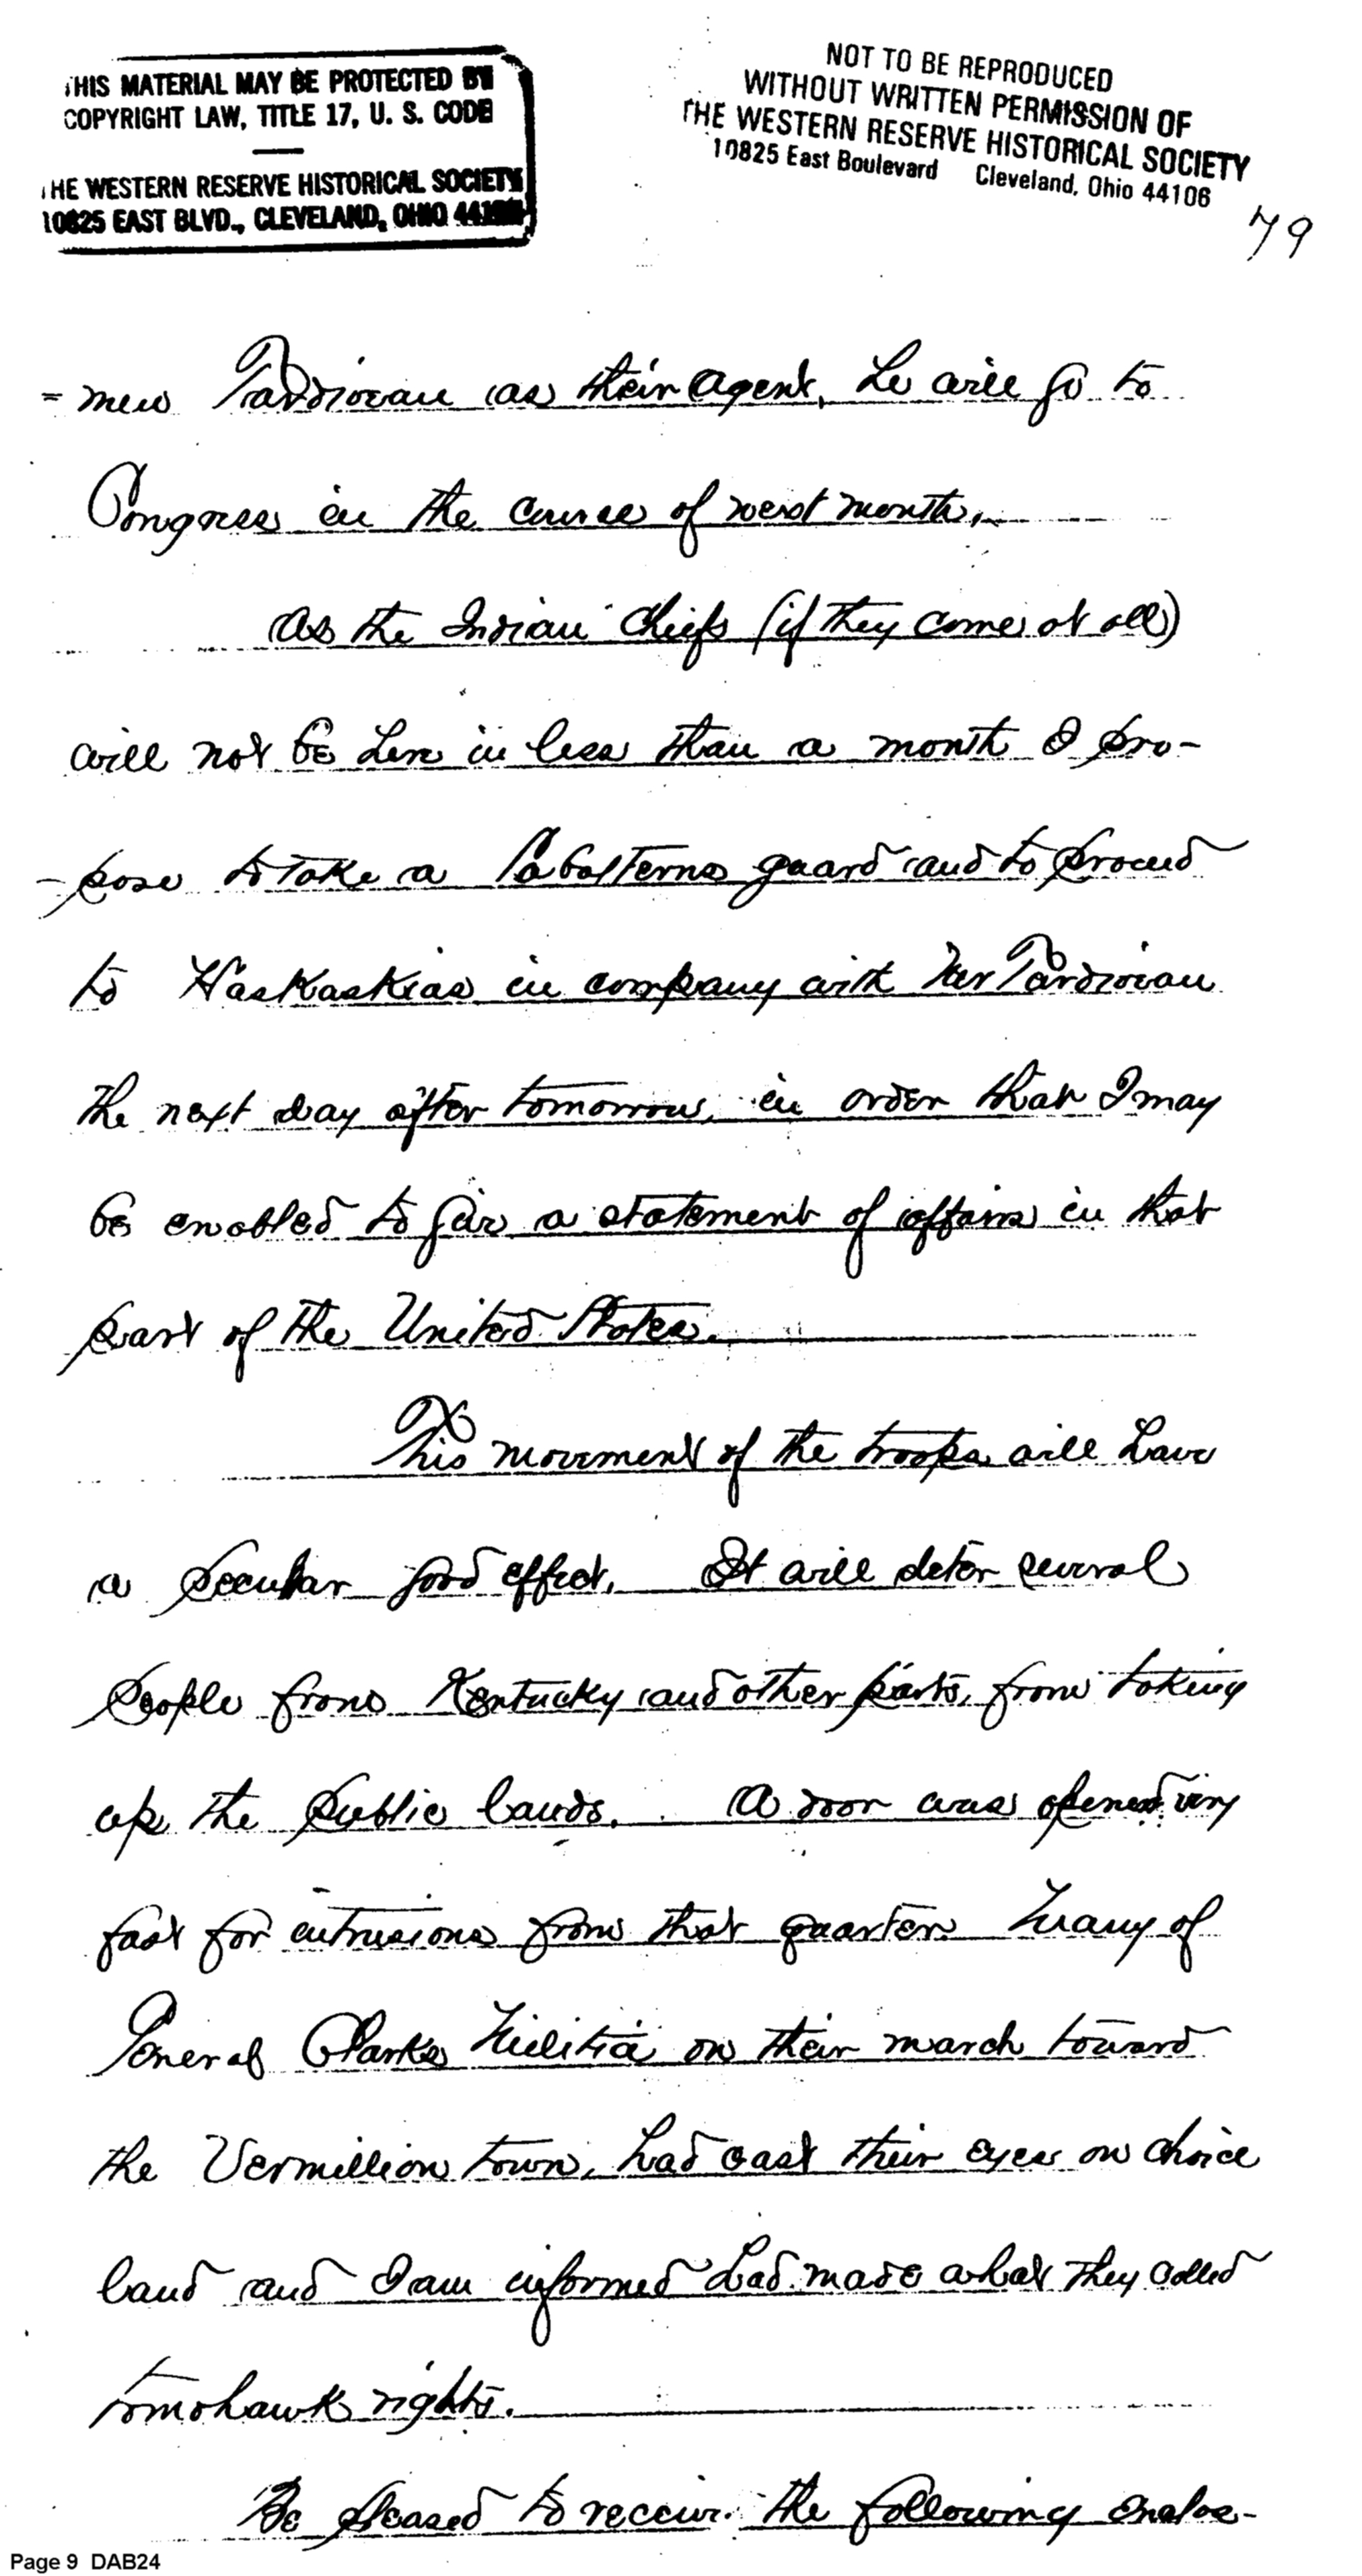 THIS MATERIAL MAY BE PROTECTED BY
COPYRIGHT LAW, TITLE 17, U. S. CODE
THE WESTERN RESERVE HISTORICAL SOCIETY
10825 EAST BLVD., CLEVELAND, OHIO 44106
NOT TO BE REPRODUCED
WITHOUT WRITTEN PERMISSION OF
THE WESTERN RESERVE HISTORICAL SOCIETY
10825 East Boulevard Cleveland, Ohio 44106
79
= mew Tardiveau as their agent, he will go to
Congress in the course of next month,
As the Indian Chiefs (if they come at all)
will not be here in less than a month I pro-
- pose to take a Subalterns guard and to proceed
to Kaskaskias in company with Mr Tardiveau
the next day after tomorrow, in order that I may
be enabled to give a statement of affairs in that
part of the United States.
This movement of the troops will have
a peculiar good effect. It will deter several
people from Kentucky and other parts, from taking
up the public lands. A door was opened very
fast for intrusions from that quarter. Many of
General Clarks Militia on their march toward
the Vermillion town, had cast their eyes on choice
land and I am informed had made what they called
tomohawk rights.
Be pleased to receive the following enclos-
Page 9 DAB24